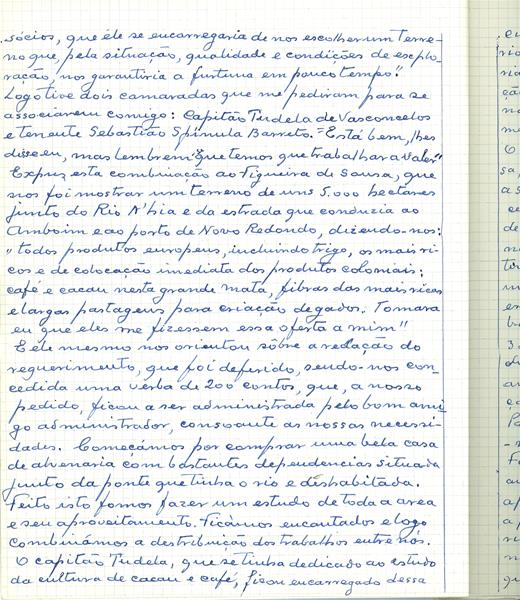 sócios, que êle se encarregaria de nos escolher um terre-
no que, pela situação, qualidade e condições de explo-
ração, nos garantiria a fortuna em pouco tempo".
Logo tive dois camaradas que me pediram para se
associarem comigo: Capitão Tudela de Vasconcelos
e tenente Sebastião Spinula Barreto. "Está bem, lhes
disse eu, mas lembrem que temos que trabalhar a valer"
Expuz esta combinação ao Figueira de Sousa, que
nos foi mostrar um terreno de uns 5.000 hectares
junto do Rio N'hia e da estrada que conduzia ao
Amboim e ao porto de Novo Redondo, dizendo-nos:
"todos produtos europeus, incluindo trigo, os mais ri-
cos e de colocação imediata dos produtos coloniais;
café e cacau nesta grande mata, fibras das mais ricas
e largas pastagens para criação de gados. Tomara
eu que eles me fizessem essa oferta a mim"
E ele mesmo nos orientou sôbre a redação do
requerimento, que foi deferido, sendo-nos con-
cedida uma verba de 200 contos, que, a nosso
pedido, ficou a ser administrada pelo bom ami-
go administrador, consoante as nossas necessi-
dades. Começámos por comprar uma bela casa
de alvenaria com bastantes dependencias situada
junto da ponte que tinha o rio e deshabitada.
Feito isto fomos fazer um estudo de toda a area
e seu aproveitamento. Ficámos encantados e logo
combinámos a destribuição dos trabalhos entre nós.
O capitão Tudela, que se tinha dedicado ao estudo
da cultura de cacau e café, ficou encarregado dessa